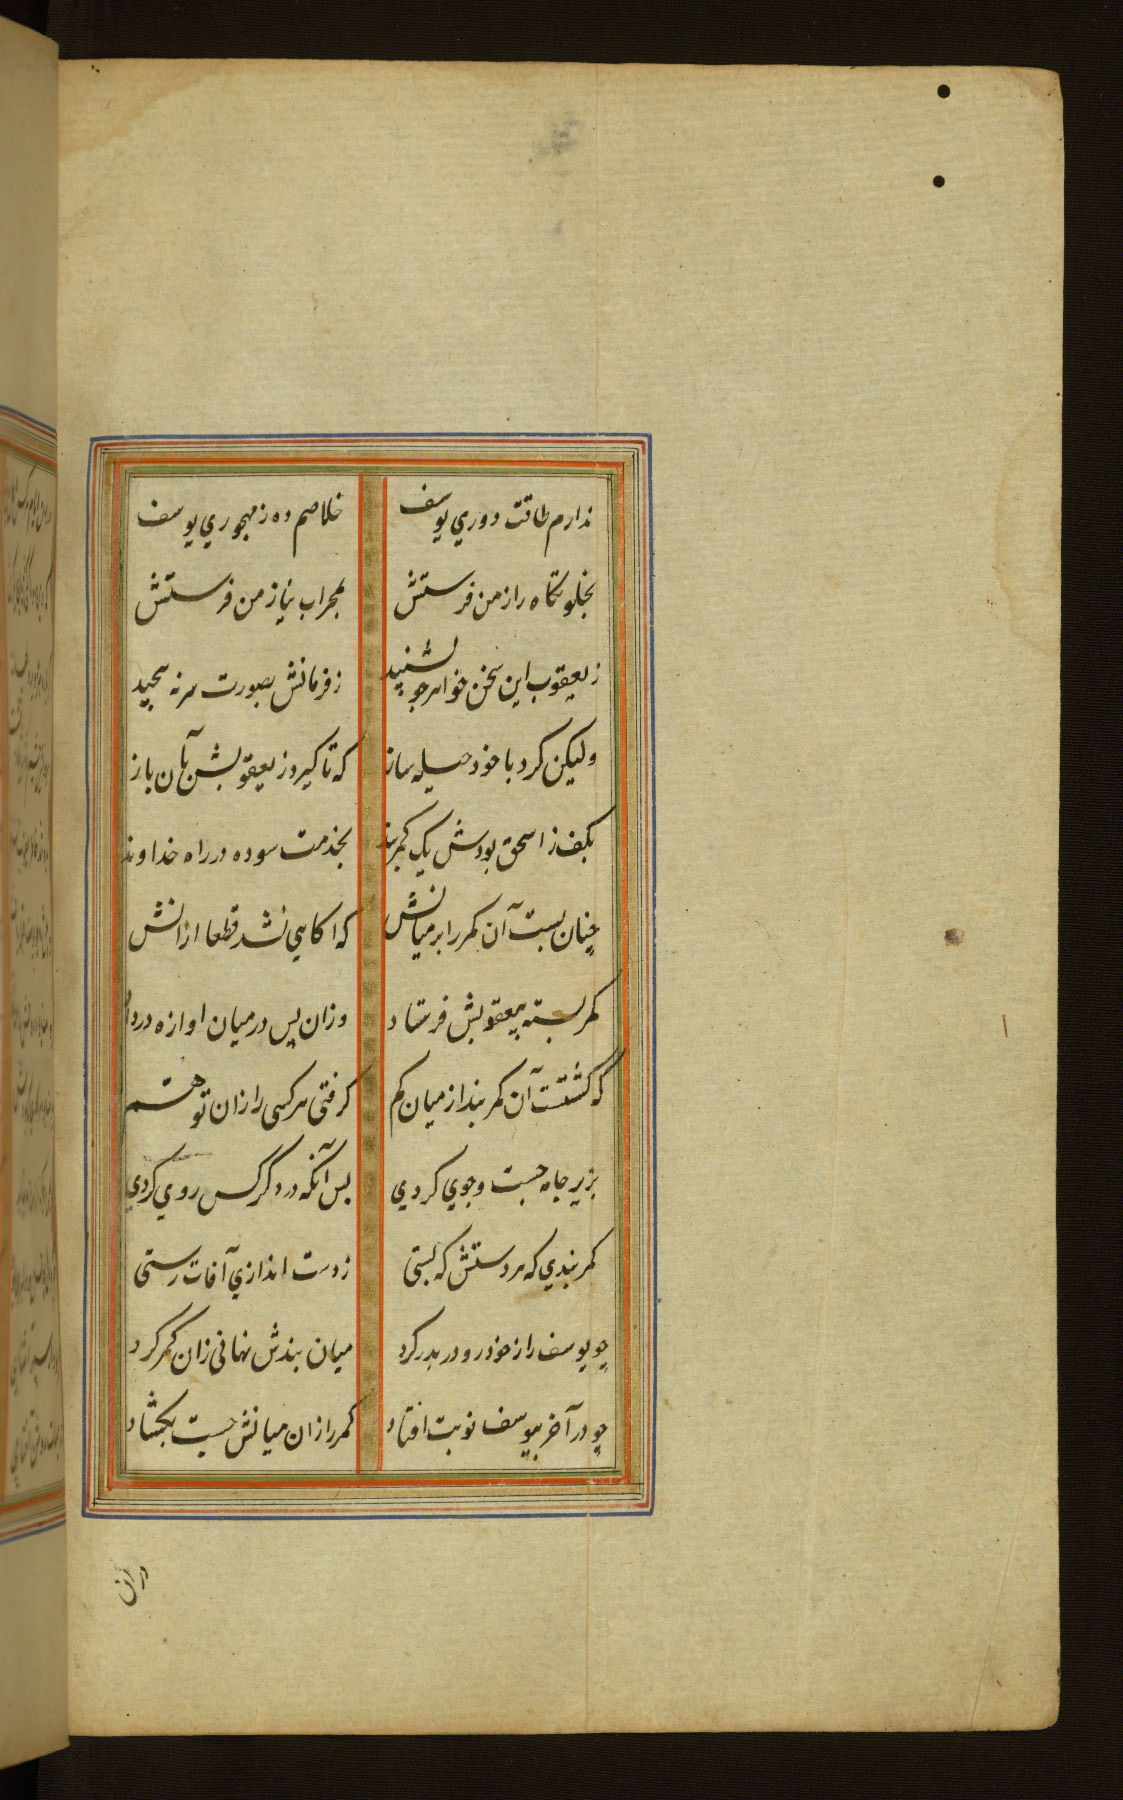 ندارم طاقت دوري يوسف خلاصم ده ز مهجوري يوسف
بخلوتكاه راز من فرستش بمحراب نياز من فرستش
ز يعقوب اين سخن خواهر چو بشنيد ز فرمانش بصورت سر نه پيچيد
وليكن كرد با خود حيله ساز كه تا كيرد ز يعقوبش بآن باز
بكف ز اسحق بودش يك كمربند بخدمت سوده در راه خداوند
چنان بست آن كمر را بر ميانش كه اكاهي نشد قطعا ازانش
كمر بسته بيعقوبش فرستاد وزان پس در ميان اوازه در داد
كه كشتست آن كمربند از ميان كم كرفتى هر كسى را زان توهم
بزير جامه جست وجوي كردي پس آنكه در دكر كس روي كردي
كمربندي كه هر دستش كه بستى ز دست اندازي آفات رستى
چو يوسف را ز خود رو در پدر كرد ميان بندش نهانى زان كمر كرد
چو در آخر بيوسف نوبت افتاد كمر را زان ميانش چست بكشاد
دران